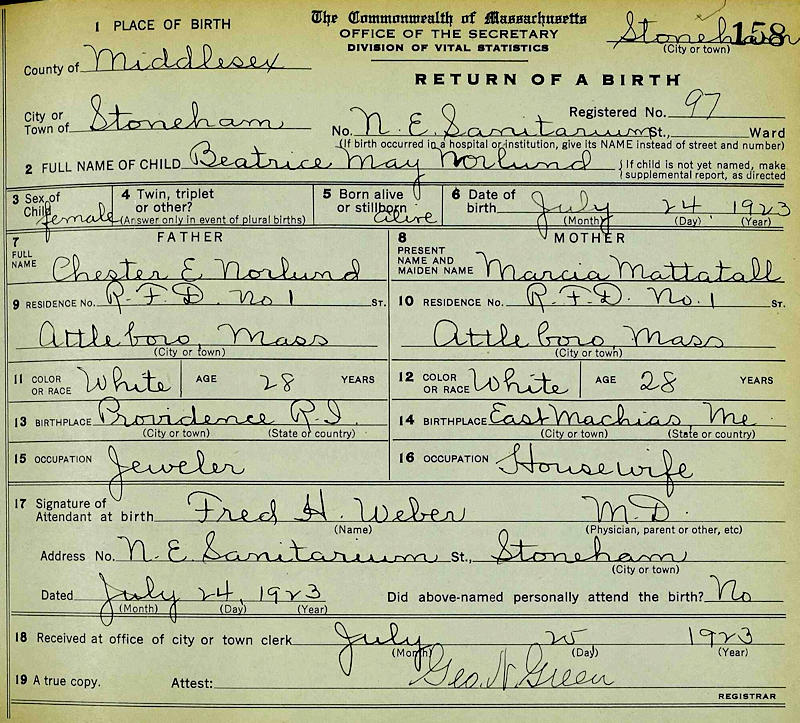 1 PLACE OF BIRTH
The Commonwealth of Massachusetts
OFFICE OF THE SECRETARY
DIVISION OF VITAL STATISTICS
Stoneham 158
(City or town)
County of Middlesex
RETURN OF A BIRTH
Registered No. 97
City or Town of Stoneham
No. N. E. Sanitarium St., Ward
(If birth occurred in a hospital or institution, give its NAME instead of street and number)
2 FULL NAME OF CHILD Beatrice May Norlund { If child is not yet named, make supplemental report, as directed
3 Sex of Child female
4 Twin, triplet or other? (Answer only in event of plural births)
5 Born alive or stillborn alive
6 Date of birth July 24, 1923
(Month) (Day) (Year)
FATHER
7 FULL NAME Chester E Norlund
MOTHER
8 PRESENT NAME AND MAIDEN NAME Marcia Mattatall
9 RESIDENCE No. R.F.D. No 1 ST.
10 RESIDENCE No. R.F.D. No. 1 ST.
Attleboro, Mass
(City or town)
Attleboro, Mass
(City or town)
11 COLOR OR RACE White AGE 28 YEARS
12 COLOR OR RACE White AGE 28 YEARS
13 BIRTHPLACE Providence R.I.
(City or town) (State or country)
14 BIRTHPLACE East Machias, Me
(City or town) (State or country)
15 OCCUPATION Jeweler
16 OCCUPATION Housewife
17 Signature of Attendant at birth Fred H. Weber M.D.
(Name) (Physician, parent or other, etc)
Address No. N. E. Sanitarium St., Stoneham
(City or town)
Dated July 24, 1923 Did above-named personally attend the birth? No
(Month) (Day) (Year)
18 Received at office of city or town clerk July 25 1923
(Month) (Day) (Year)
19 A true copy. Attest: Geo. N. Green
REGISTRAR